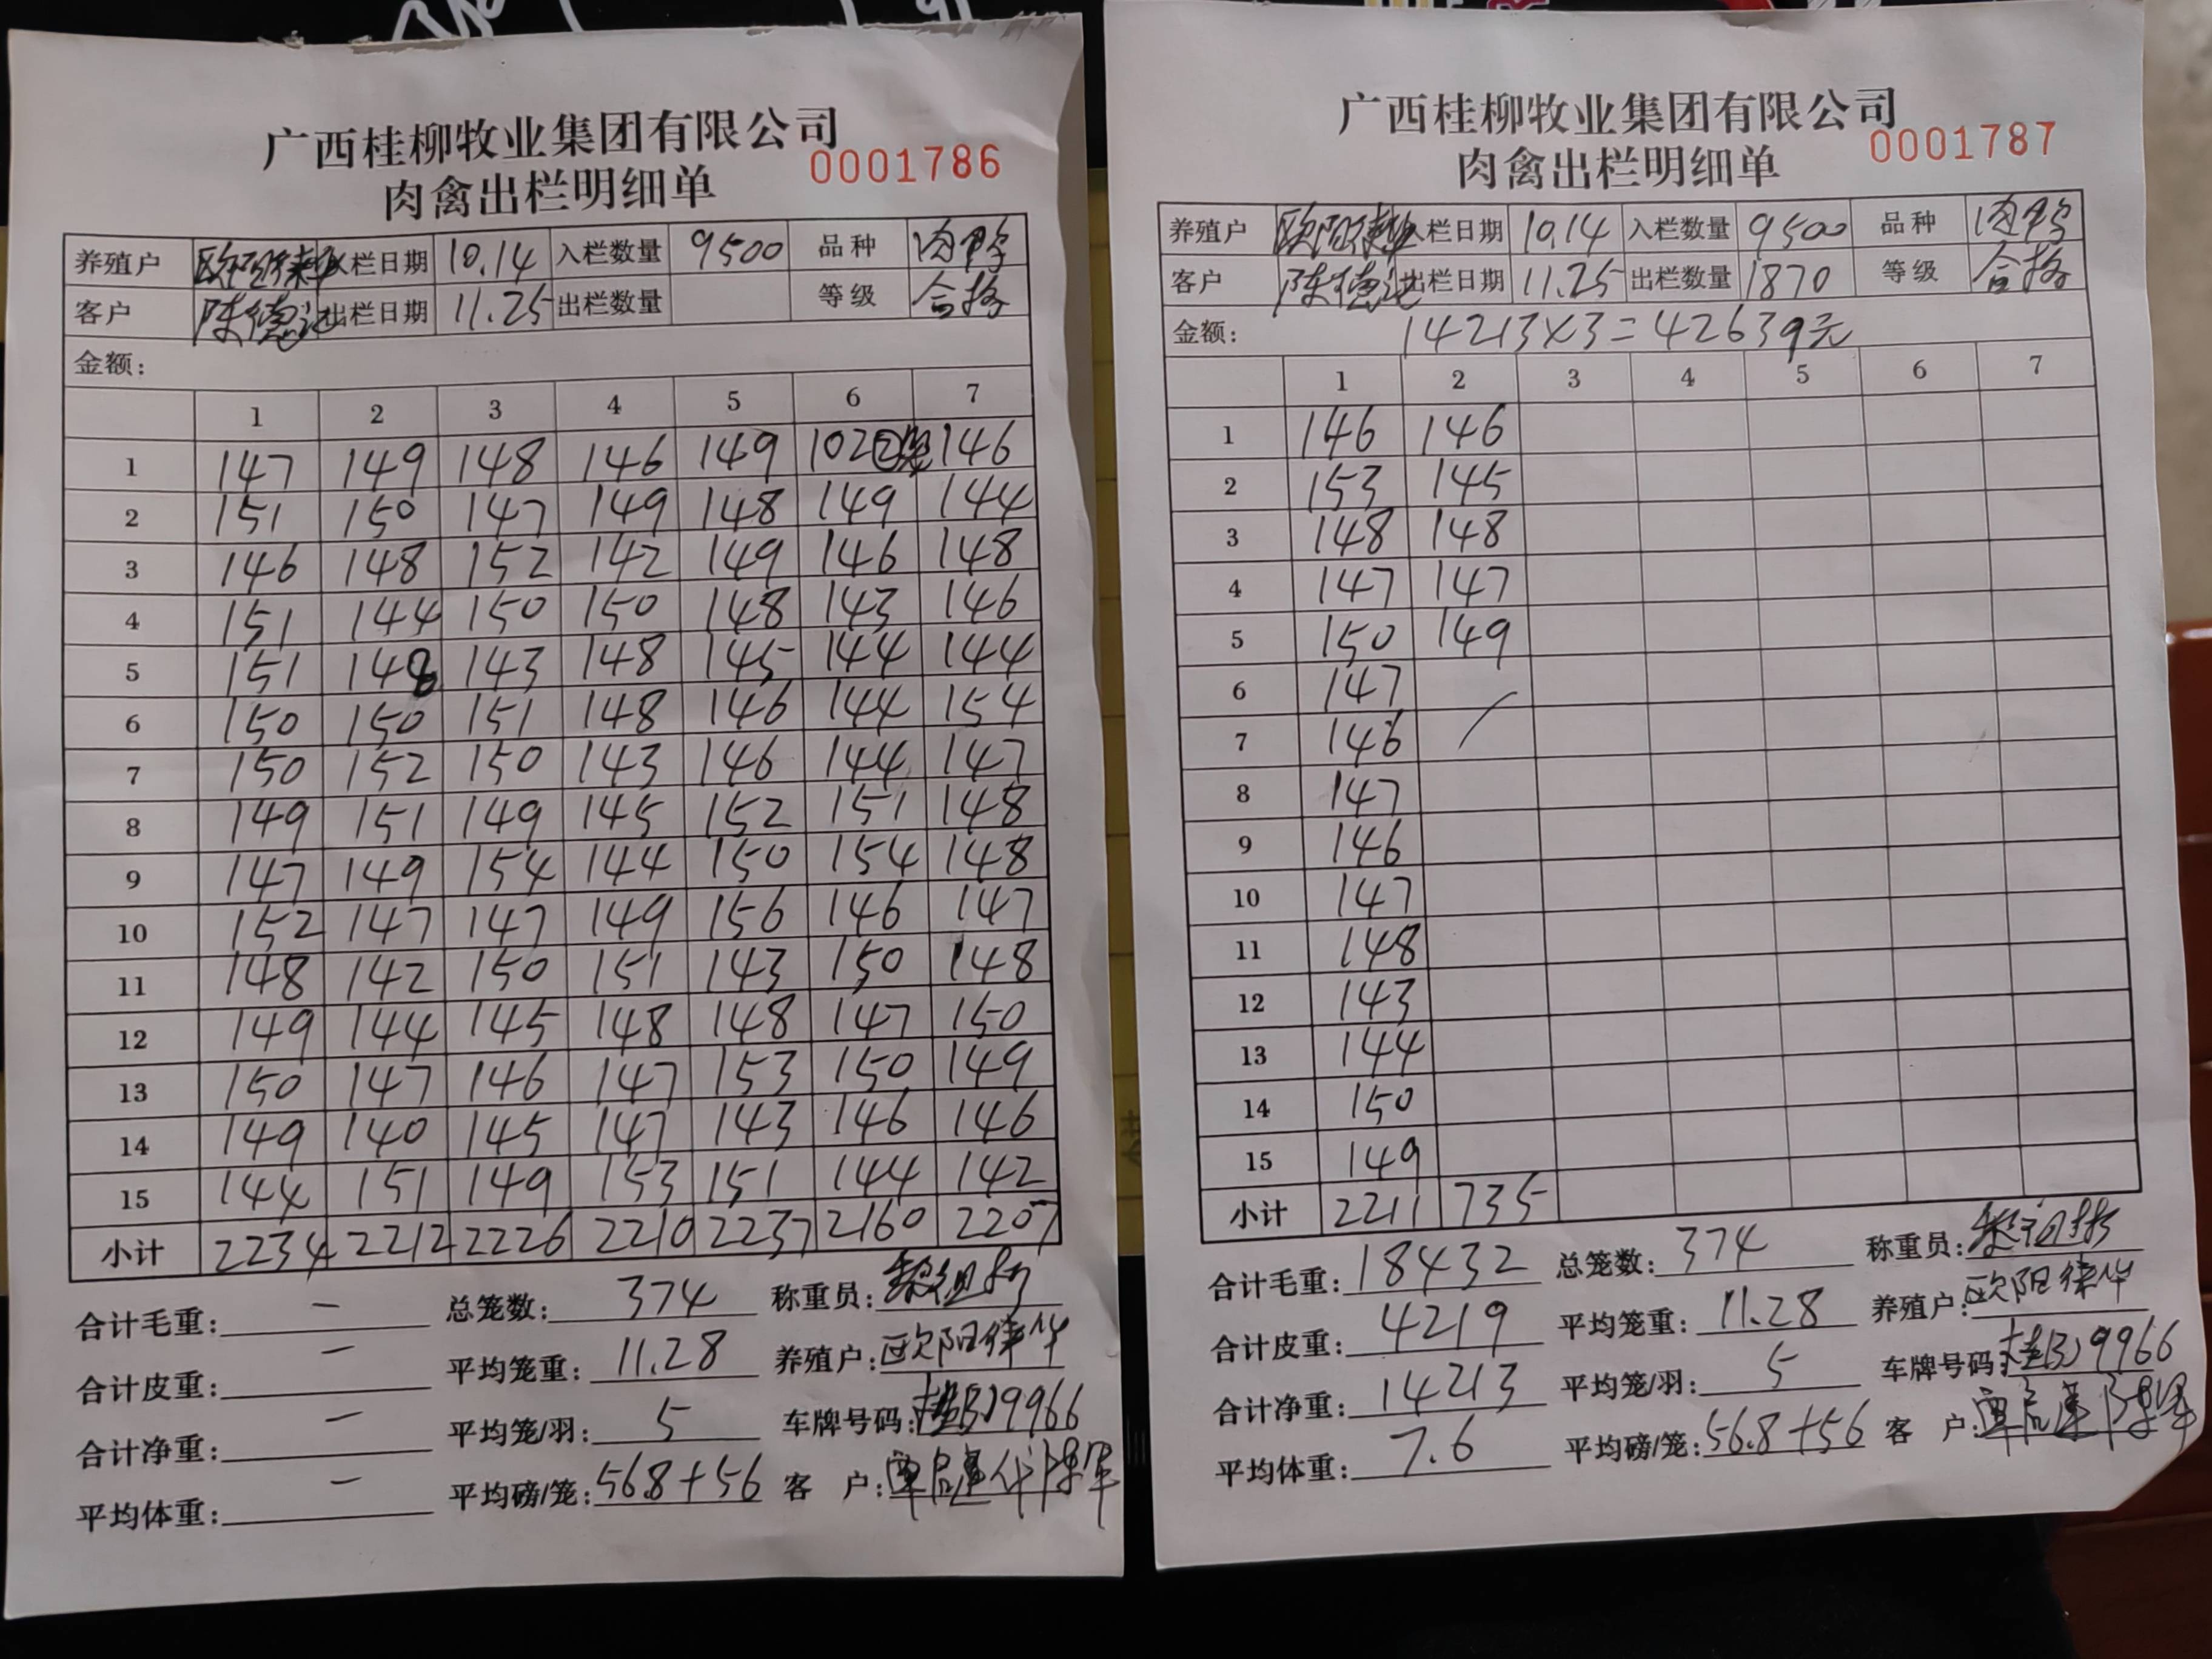 广西桂柳牧业集团有限公司
肉禽出栏明细单 0001786
养殖户 入栏日期 10.14 入栏数量 9500 品种
客户 陈德 出栏日期 11.25 出栏数量 等级 合格
金额:
1 2 3 4 5 6 7
1 147 149 148 146 149 102 146
2 151 150 147 149 148 149 144
3 146 148 152 142 149 146 148
4 151 144 150 150 148 143 146
5 151 148 143 148 145 144 144
6 150 150 151 148 146 144 154
7 150 152 150 143 146 144 147
8 149 151 149 145 152 151 148
9 147 149 154 144 150 154 148
10 152 147 147 149 156 146 147
11 148 142 150 151 143 150 148
12 149 144 145 148 148 147 150
13 150 147 146 147 153 150 149
14 149 140 145 147 143 146 146
15 144 151 149 153 151 144 142
小计 2234 2212 2226 2210 2237 2160 2207
合计毛重: — 总笼数: 374 称重员:
合计皮重: — 平均笼重: 11.28 养殖户: 欧阳
合计净重: — 平均笼/羽: 5 车牌号码: 9966
平均体重: — 平均磅/笼: 56.8+56 客 户:
广西桂柳牧业集团有限公司
肉禽出栏明细单 0001787
养殖户 欧阳 入栏日期 10.14 入栏数量 9500 品种
客户 陈德 出栏日期 11.25 出栏数量 1870 等级 合格
金额: 14213×3=42639元
1 2 3 4 5 6 7
1 146 146
2 153 145
3 148 148
4 147 147
5 150 149
6 147
7 146
8 147
9 146
10 147
11 148
12 143
13 144
14 150
15 149
小计 2211 735
合计毛重: 18432 总笼数: 374 称重员:
合计皮重: 4219 平均笼重: 11.28 养殖户: 欧阳
合计净重: 14213 平均笼/羽: 5 车牌号码: 9966
平均体重: 7.6 平均磅/笼: 56.8+56 客 户: